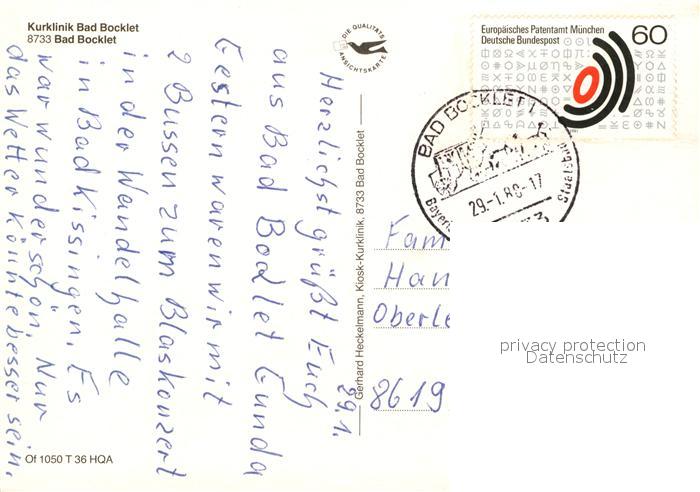 Kurklinik Bad Bocklet
8733 Bad Bocklet
DIE QUALITÄTS
ANSICHTSKARTE
Europäisches Patentamt München
Deutsche Bundespost
60
BAD BOCKLET 1
29.-1.88-17
Staatsbad
29.1.
Herzlichst grüßt Euch
aus Bad Bocklet Gunda
Gestern waren wir mit
2 Bussen zum Blaskonzert
in der Wandelhalle
in Bad Kissingen. Es
war wunderschön. Nur
das Wetter könnte besser sein.
Gerhard Heckelmann, Kiosk-Kurklinik, 8733 Bad Bocklet
Fam
Han
Oberle
8619
privacy protection
Datenschutz
Of 1050 T 36 HQA